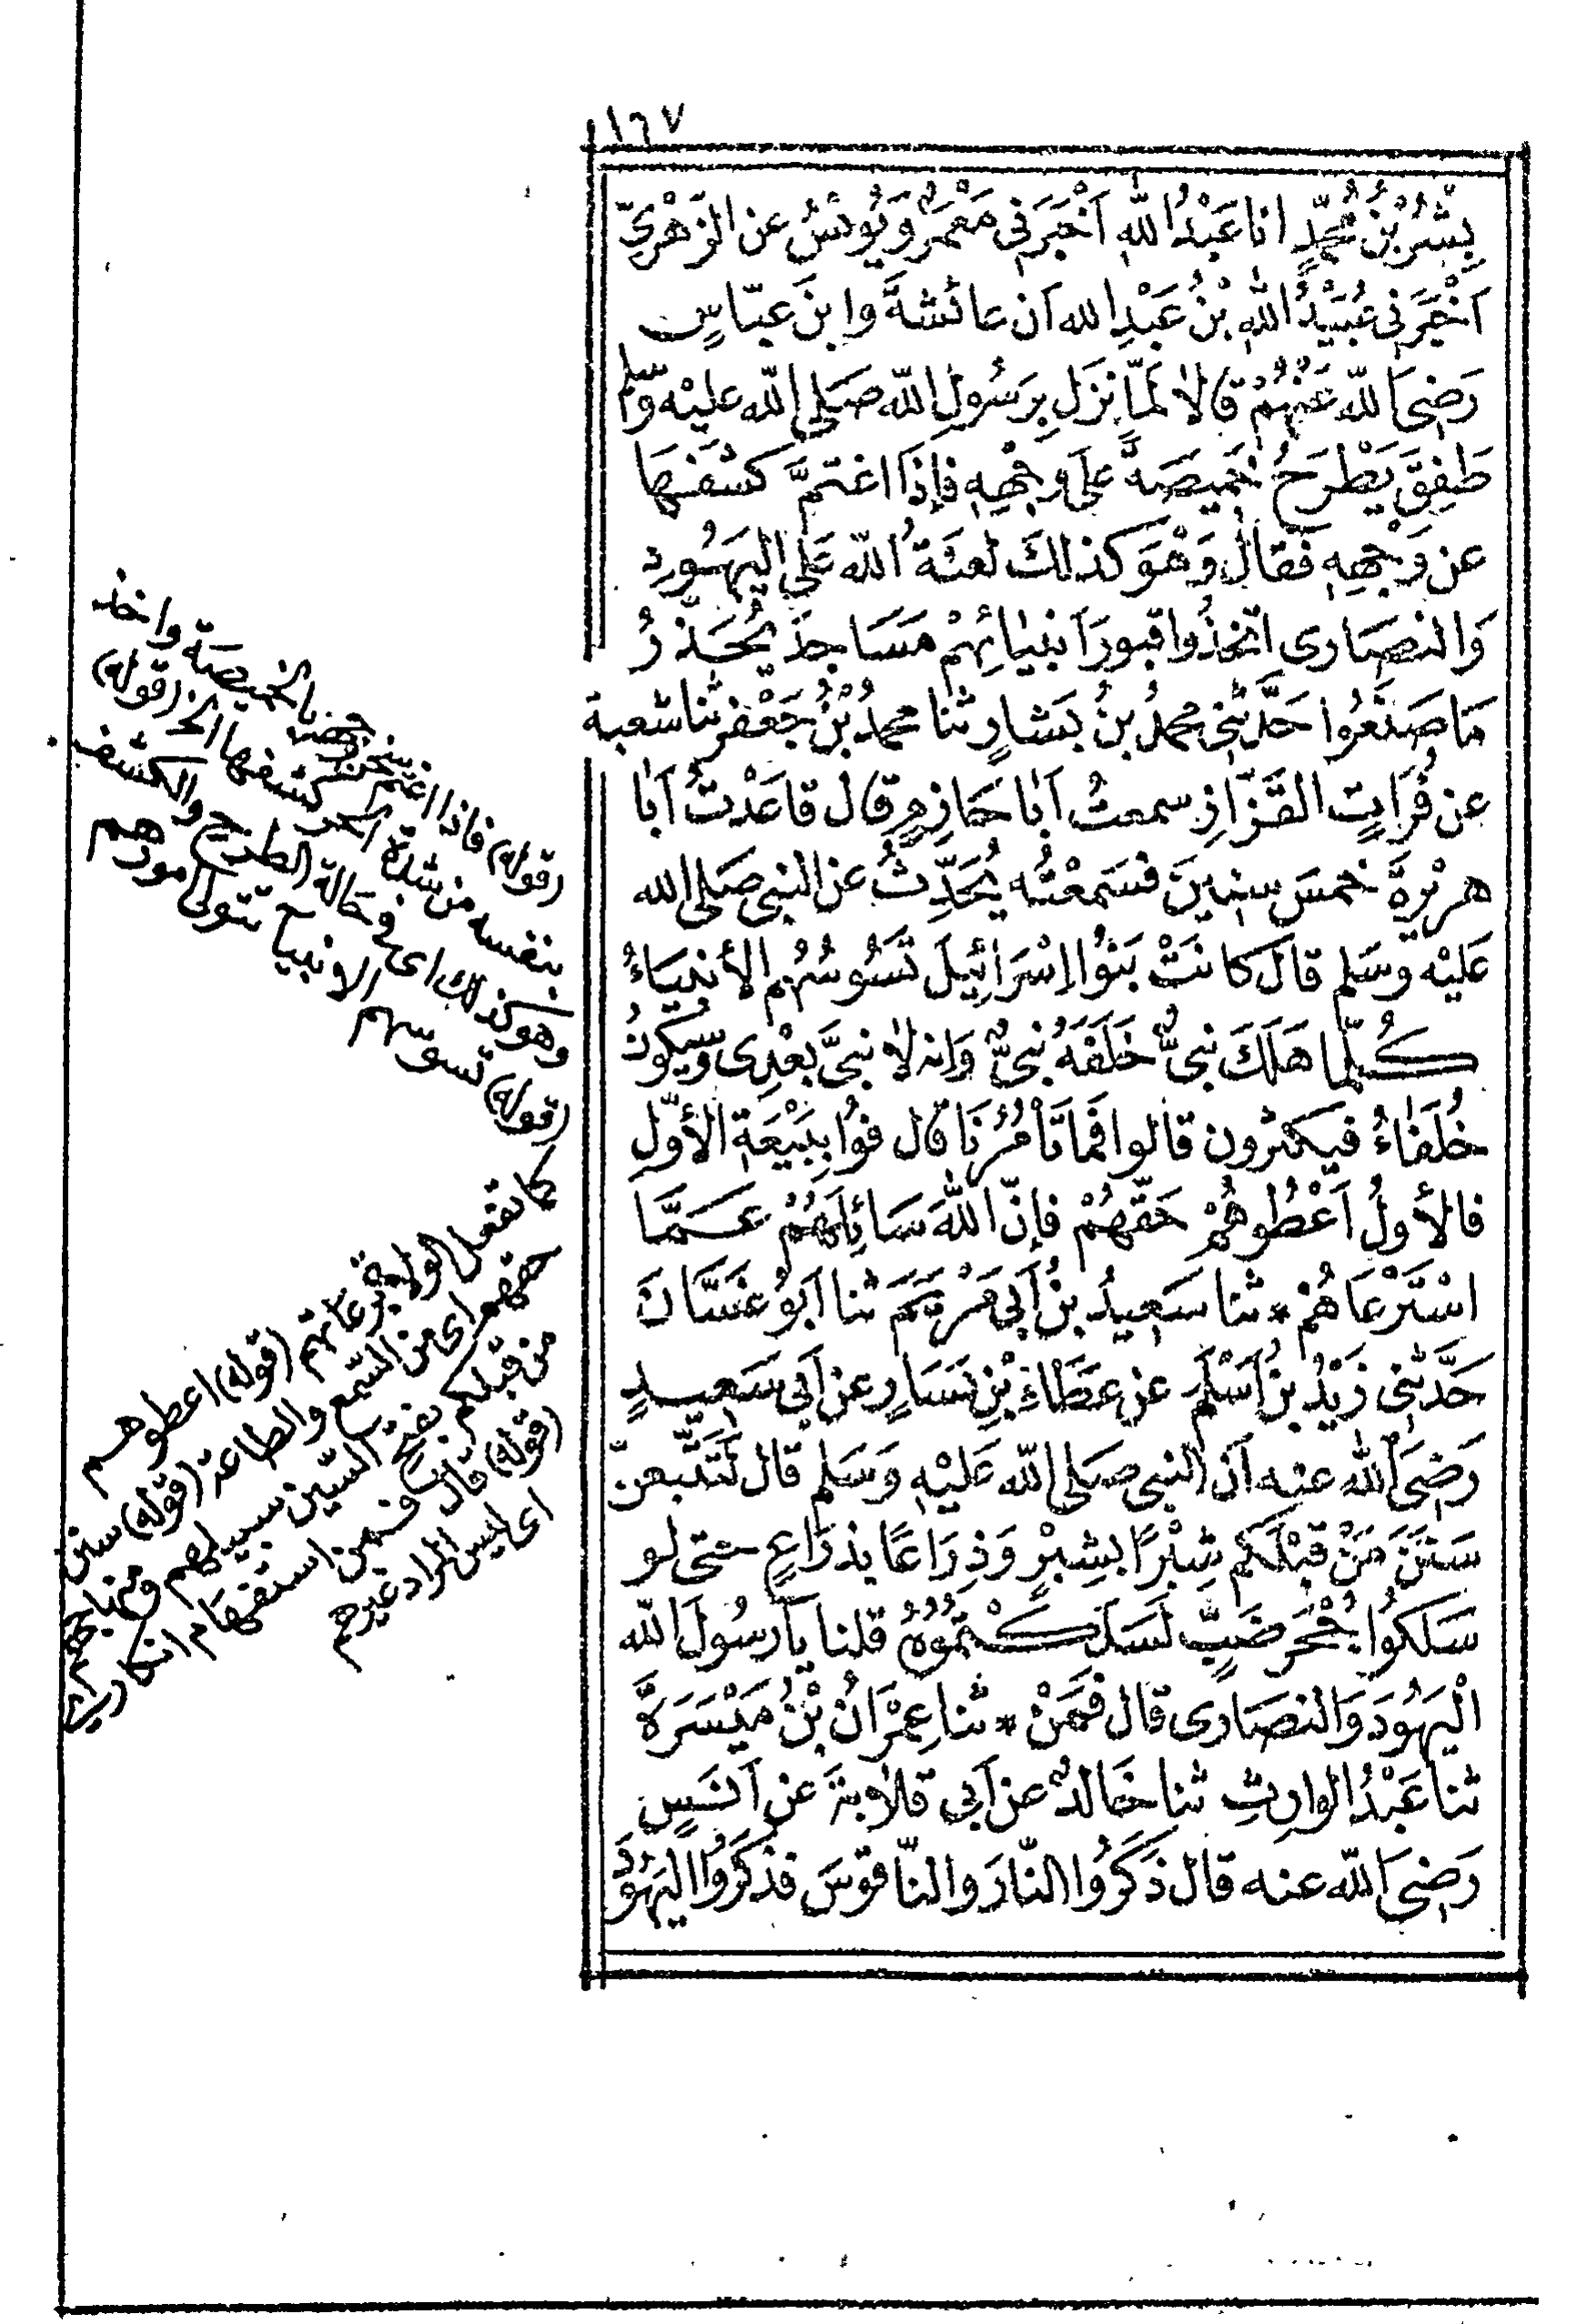 ١٦٧
بِشْرُ بْنُ مُحَمَّدٍ انا عَبْدُ اللّٰهِ اَخْبَرَنِى مَعْمَرٌ وَيُونُسُ عن الزُّهْرِيِّ
اَخْبَرَنِى عُبَيْدُ اللّٰهِ بْنُ عَبْدِ الله اَن عائشةَ وابنَ عبّاسٍ
رَضِىَ اللّٰه عَنْهُمْ قالا لَمَّا نزَلَ بِرَسُولِ اللّٰه صَلى اللّٰه عليْه وسّلم
طَفِقَ يَطْرَحُ خَمِيصَةً على وجْهِهِ فإِذَا اغتمَّ كَشَفَهَا
عن وَجْهِهِ فَقَالَ وَهْوَ كذلكَ لعنَةُ اللّٰه عَلى اليَهُودِ
وَالنصَارى اتّخذُوا قبورَ اَنبيٰائِهمْ مَسَاجدَ يُحَذّرُ
مَا صَنَعُوا حَدَّثنِى محمدُ بنُ بَشارٍ ثنا محمدُ بْنُ جَعْفرٍ ثنا شعبة
عن فُرَاتٍ القَزّازِ سمعتُ اَبا حَازِمٍ قال قاعَدْتُ اَبا
هريْرةَ خمسَ سِنِينَ فسَمعْتُه يُحَدِّثُ عن النبى صَلى الله
عَليْه وسَلم قالَ كانَتْ بَنُوا اِسْرَائِيلَ تَسُوسُهُم الأنبيَاءُ
كُلّما هَلَكَ نبىٌّ خَلَفَهُ نبىٌّ وَانه لا نبىَّ بعْدِى وسَيكونُ
خُلَفاءُ فيكثرون قالوا فَمَا تَأمُرُنَا قال فُوا بِبَيْعَةِ الأوّلِ
فالأولُ اَعْطُوهُمْ حَقّهُمْ فاِنّ اللّٰهَ سَائِلُهُمْ عَمَّا
اسْتَرْعَاهُمْ * ثنا سَعِيدُ بنُ اَبى مَرْيَمَ ثنا اَبُو غَسَّانَ
حَدَّثنِى زَيْدُ بنُ اَسْلَمَ عن عَطَاءِ بْنِ يَسَارٍ عن اَبى سَعِيدٍ
رَضِىَ اللّٰه عنه اَن النبى صَلى اللّٰه عَليْهِ وَسَلم قال لَتَتَّبعنّ
سَنَنَ مَنْ قَبْلَكم شِبْرًا بشِبْرٍ وَذِرَاعًا بذرَاعٍ حتى لو
سَلَكُوا جُحْرَ ضَبٍّ لَسَلَكْتمُوهُ قلنا يا رَسُولَ اللّٰه
الْيَهُودَ وَالنصَارى قال فَمَنْ * ثنا عِمْرَانُ بْنُ مَيْسَرَةَ
ثنا عَبْدُ الوارثِ ثنا خَالدٌ عن اَبى قلابةَ عن اَنَسٍ
رَضِىَ اللّٰه عنه قال ذَكَرُوا النّارَ والنّاقوسَ فذكرُوا اليَهُودَ
(قوله) فاذا اغتم سخن وجهه بالخميصة واخذ
بنفسه من شدة الحر كشفها الخ (قوله)
وهو كذلك اى فى حالة الطرح والكشف
(قوله) تسوسهم الانبياء تتولى امورهم
كما تفعل الولاة برعاتهم (قوله) اعطوهم
حقهم اى من السّمع والطاعة (قوله) سنن
من قبلكم بفتح السّين سبيلهم ومنهاجهم
(قوله) قال فمن استفهام انكارى
اى ليس المراد غيرهم